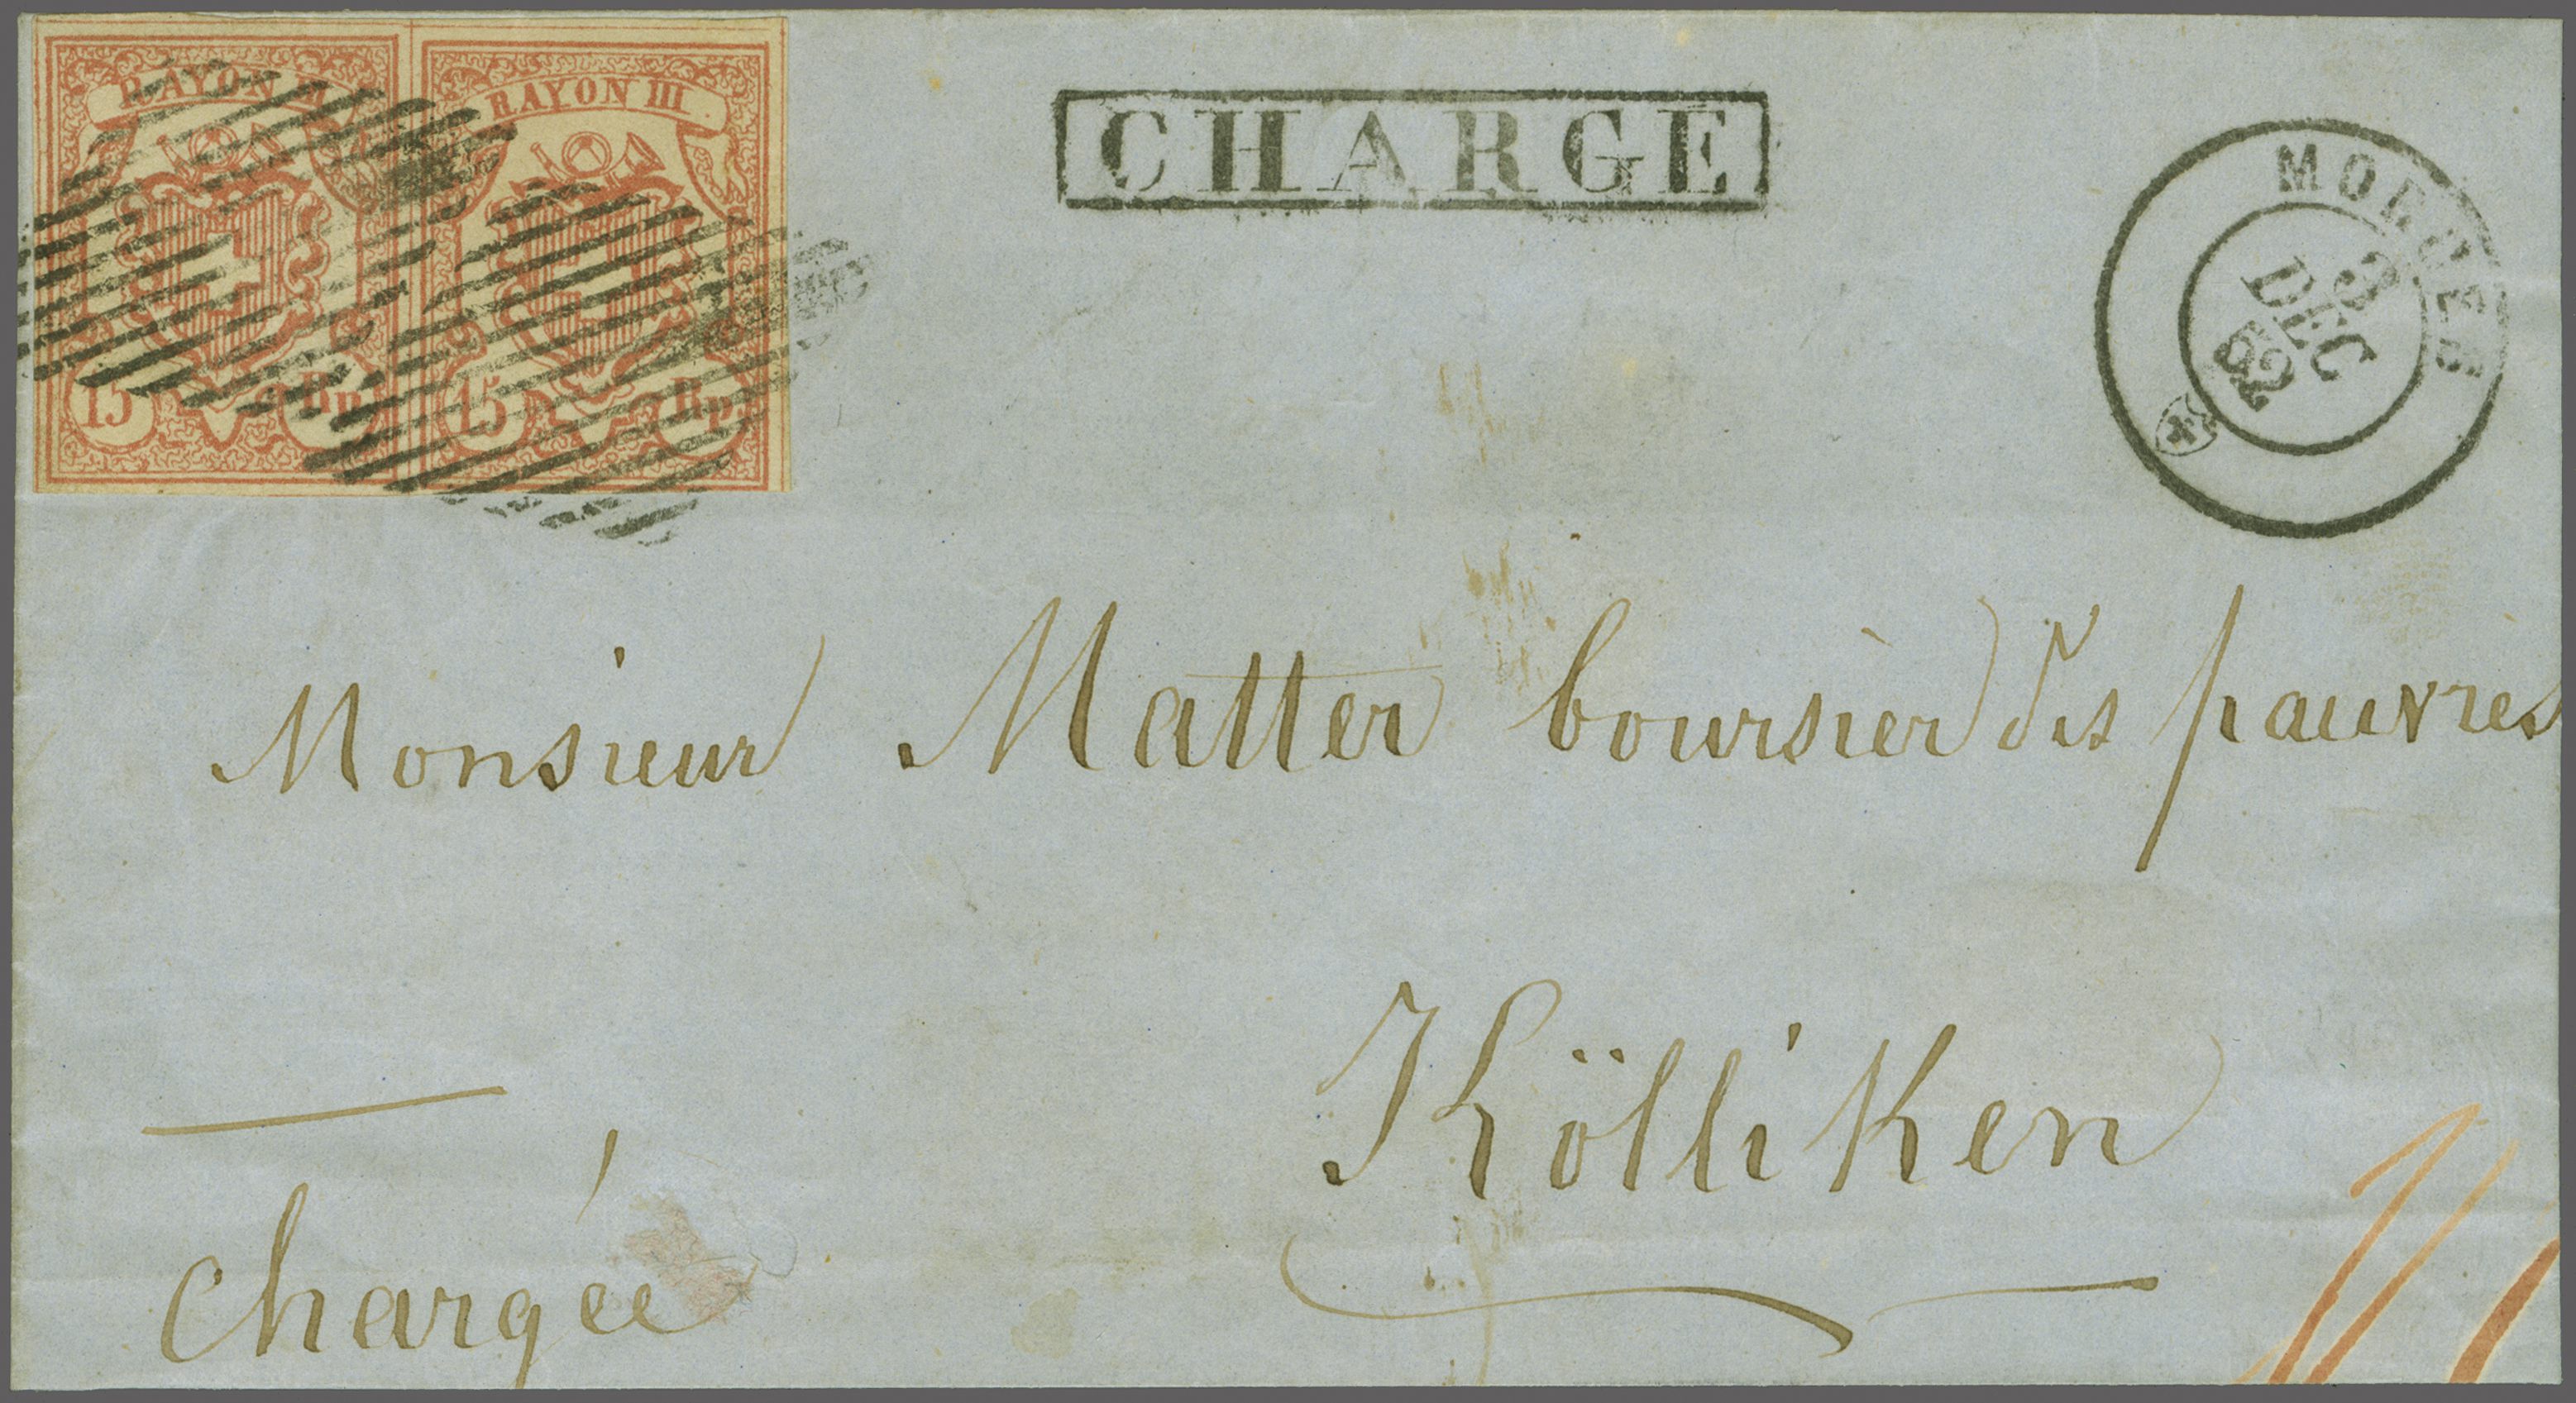 RAYON III
15 Rp.
RAYON III
15 Rp.
CHARGE
MORGES
3
DEC
52
Monsieur Matter boursier des pauvres
Kölliken
Chargée